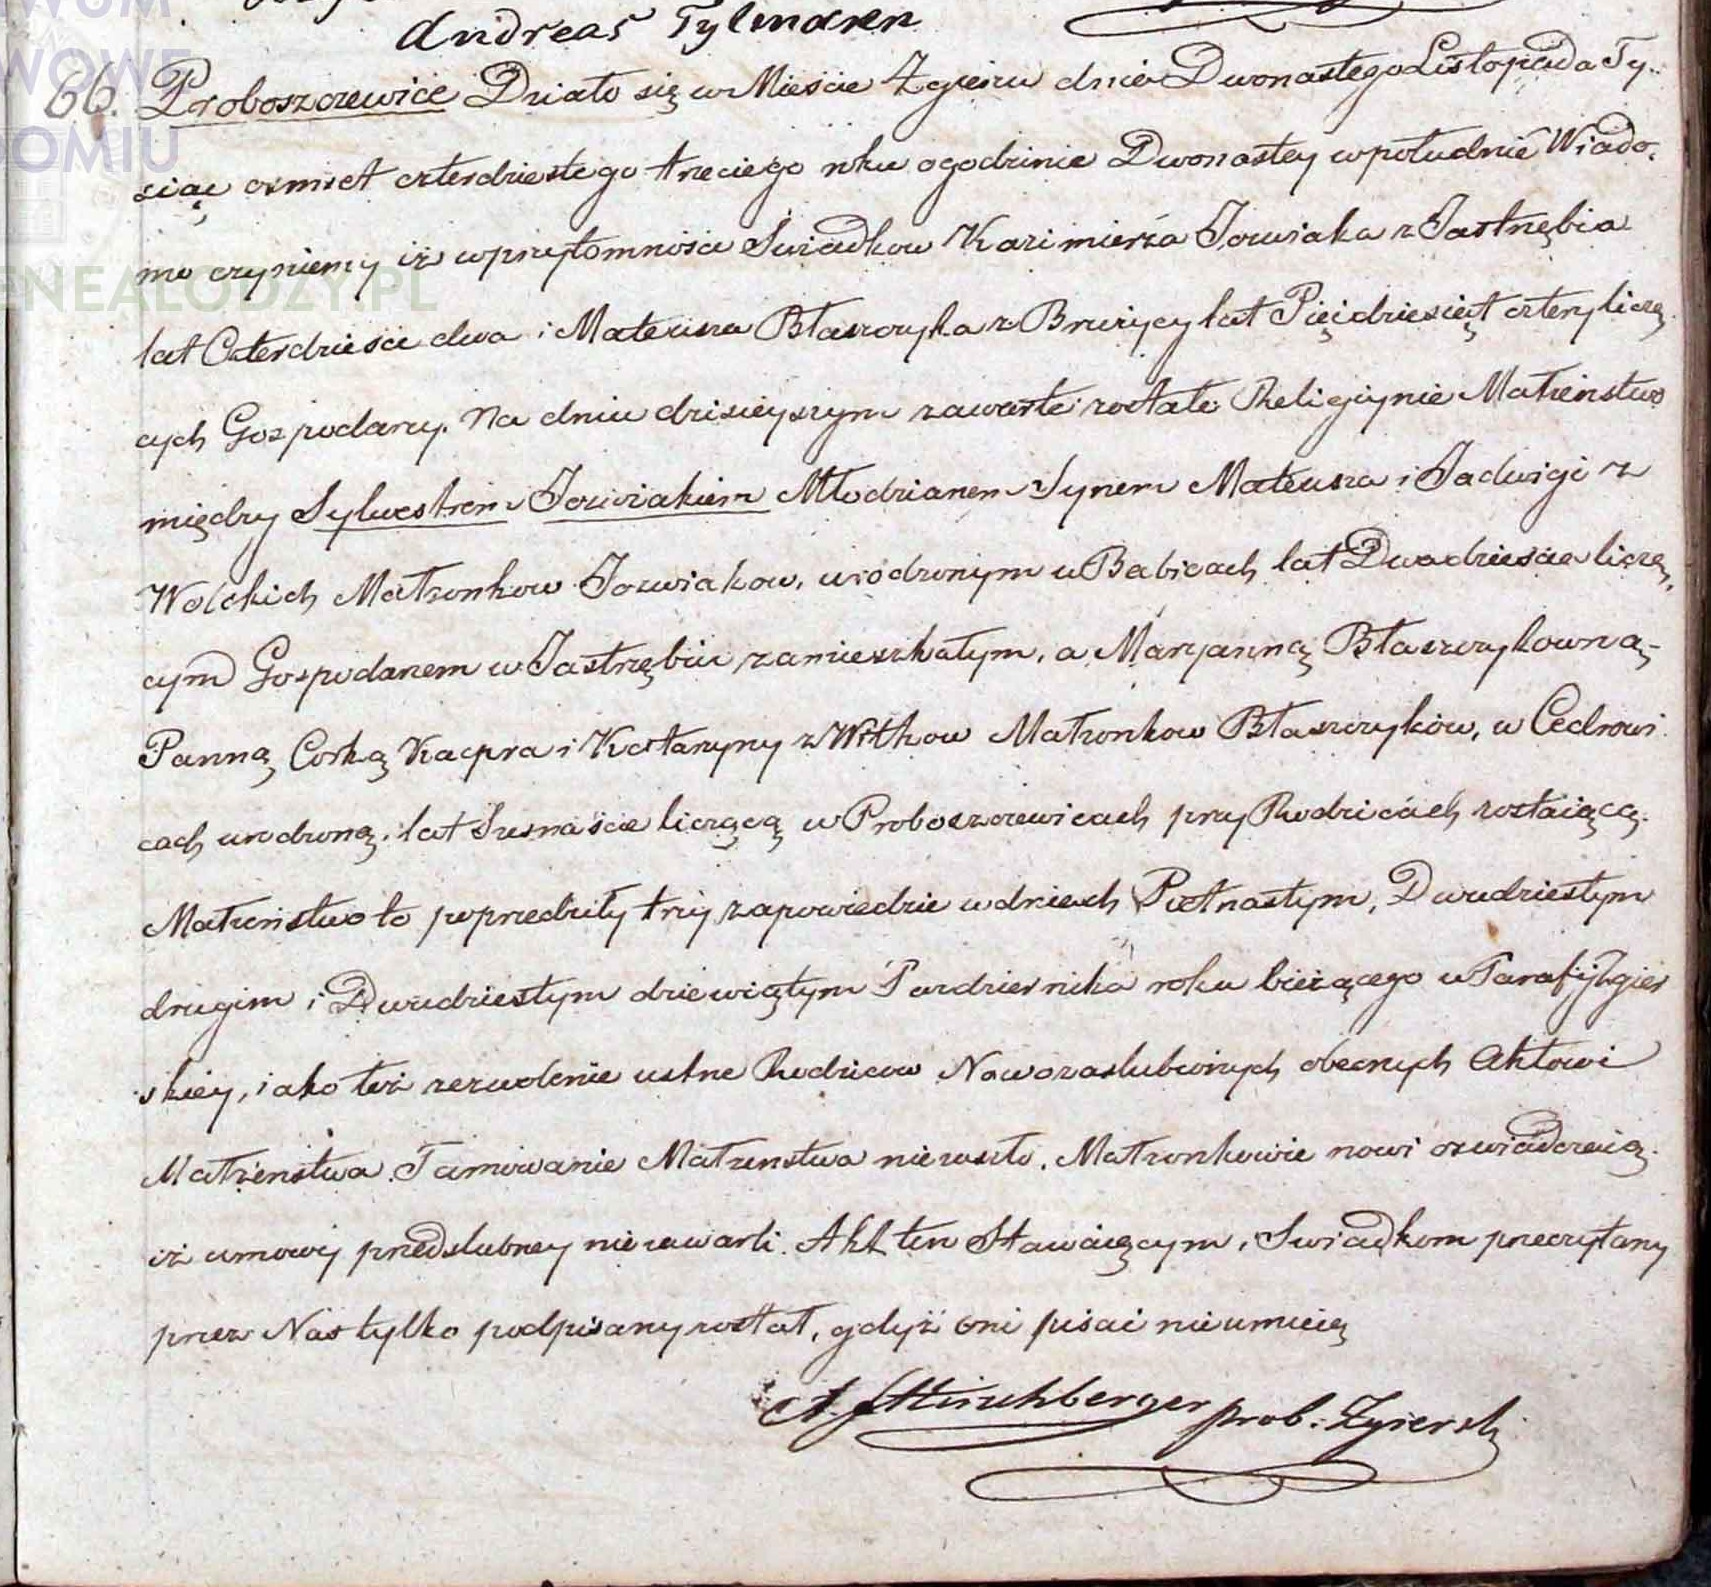 Andreas Tylmann
66. Proboszczewice Działo się w Mieście Zgierzu dnia Dwonastego Listopada Ty-
siąc osmset czterdziestego trzeciego roku o godzinie Dwonastey w południe Wiado-
mo czyniemy iż w przytomności Swiadkow Kazimierza Jozwiaka z Jastrzębia
lat Czterdzieści dwa i Mateusza Błaszczyka z Bruzycy lat Pięćdziesiąt cztery liczą-
cych Gospodarzy. Na dniu dzisieyszym zawarte zostało Religiynie Małżeństwo
między Sylwestrem Jozwiakiem Młodzianem Synem Mateusza i Jadwigi z
Wolskich Małżonkow Jozwiakow, urodzonym w Babicach lat Dwadzieścia liczą-
cym Gospodarzem w Jastrzębiu zamieszkałym, a Maryanną Błaszczykowną-
Panną, Corką Kacpra i Katarzyny z Witkow Małżonkow Błaszczyków, w Cedrowi-
cach urodzoną, lat Szesnaście liczącą w Proboszczewicach przy Rodzicach zostaiącą.
Małżeństwo to poprzedziły trzy zapowiedzie w dniach Piętnastym, Dwudziestym
drugim i Dwudziestym dziewiątym Pazdziernika roku bieżącego w Parafij Zgier
skiey, iako też zezwolenie ustne Rodzicow Nowozaslubionych obecnych Aktowi
Małżeństwa. Tamowanie Małżenstwa nie zaszło. Małżonkowie nowi oswiadczaią
iż umowy przedslubney nie zawarli. Akt ten Stawaiącym, Swiadkom przeczytany
przez Nas tylko podpisany został, gdyż oni pisać nie umieią
A. Hirschberger prob. Zgierski
WOM
WOWE
DOMIU
GENEALODZY.PL